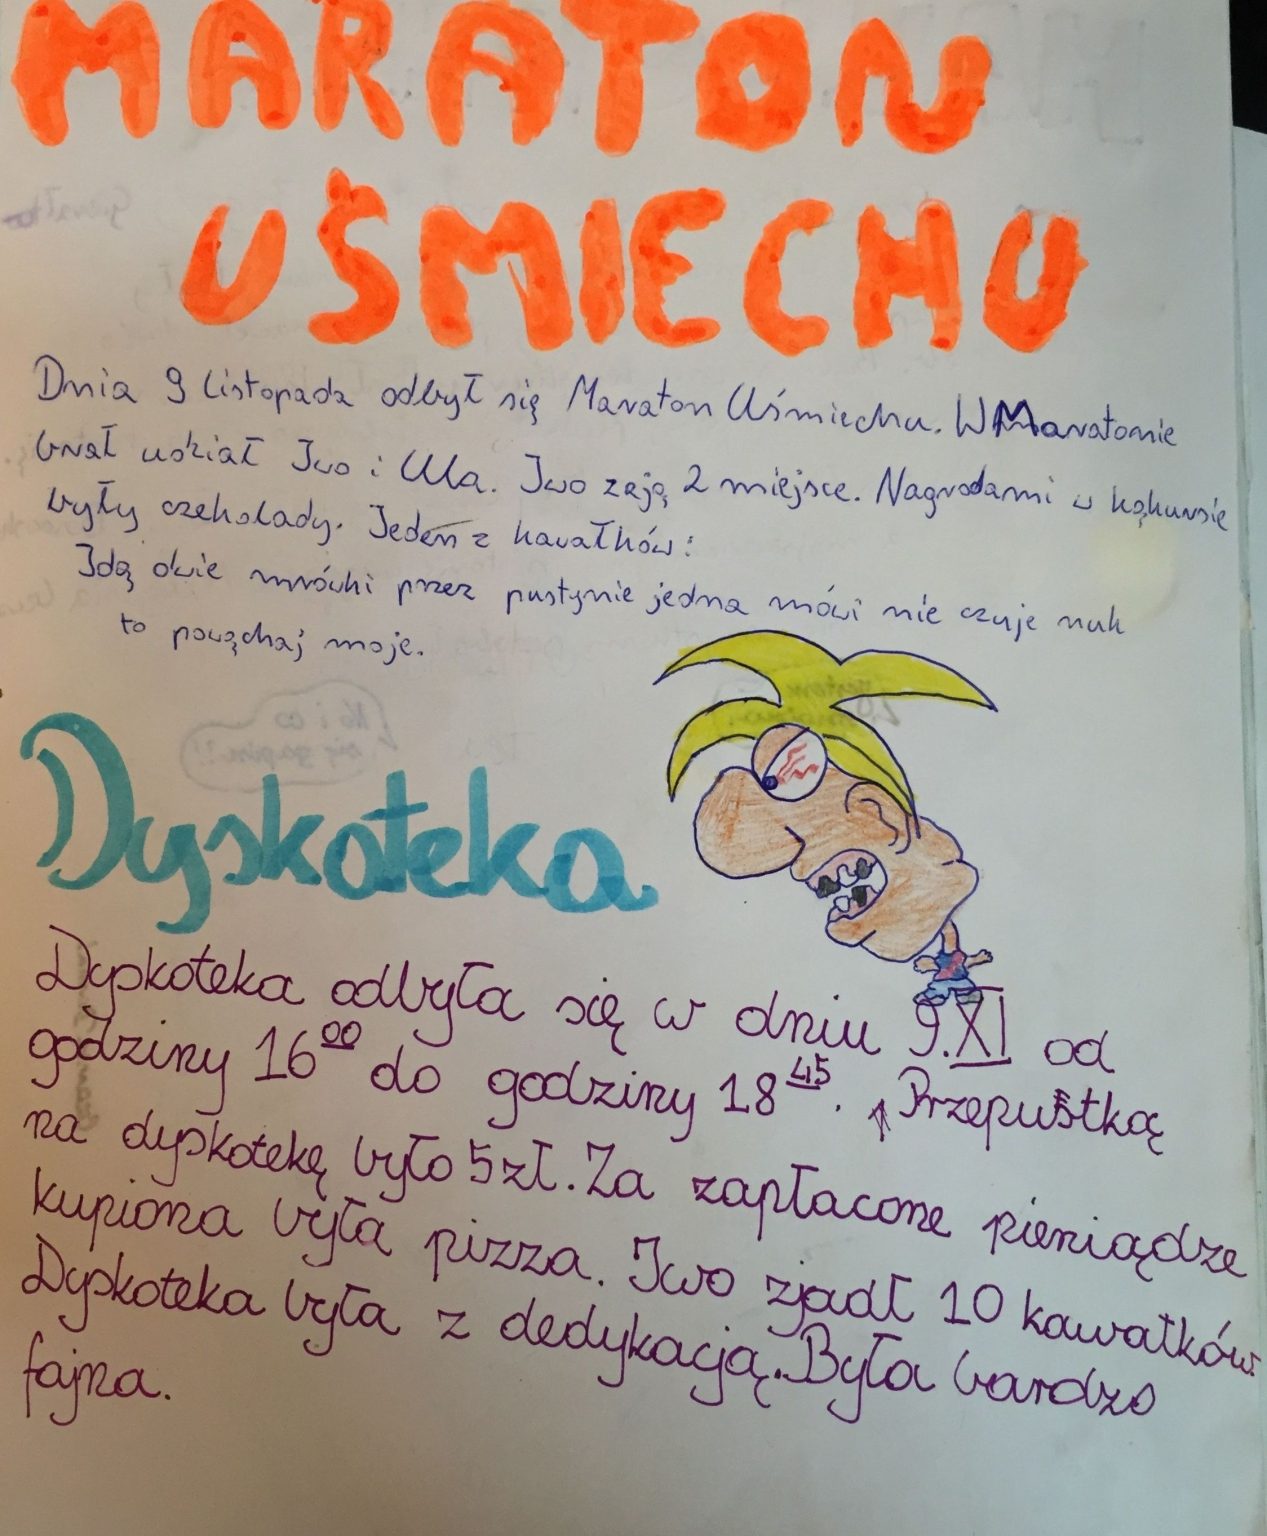 MARATON
UŚMIECHU
Dnia 9 listopada odbył się Maraton Uśmiechu. W Maratonie
brał udział Iwo i Ula. Iwo zają 2 miejsce. Nagrodami w kąkursie
były czekolady. Jeden z kawałków:
Idą dwie mrówki przez pustynie jedna mówi nie czuje nuk
to pową­chaj moje.
Dyskoteka
Dyskoteka odbyła się w dniu 9.XI od
godziny 16⁰⁰ do godziny 18⁴⁵. Przepustką
na dyskotekę było 5 zł. Za zapłacone pieniądze
kupiona była pizza. Iwo zjadł 10 kawałków.
Dyskoteka była z dedykacją. Była bardzo
fajna.